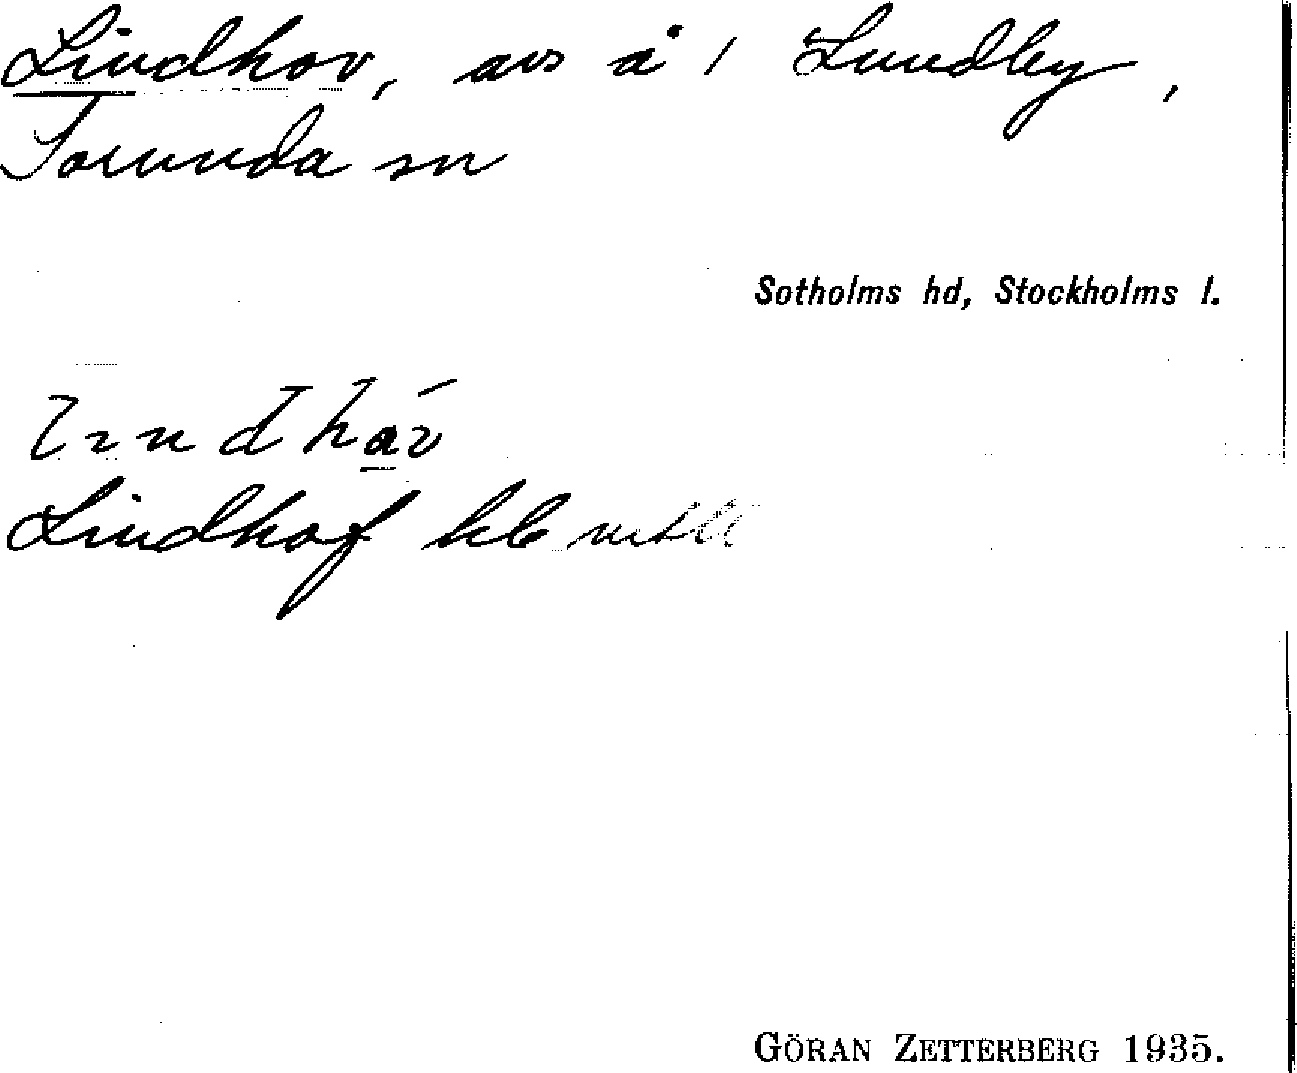 Lindhov, avs å 1 Lundby,
Torunda sn
Sotholms hd, Stockholms l.
lındhav́
Lindhof hb
GÖRAN ZETTERBERG 1935.